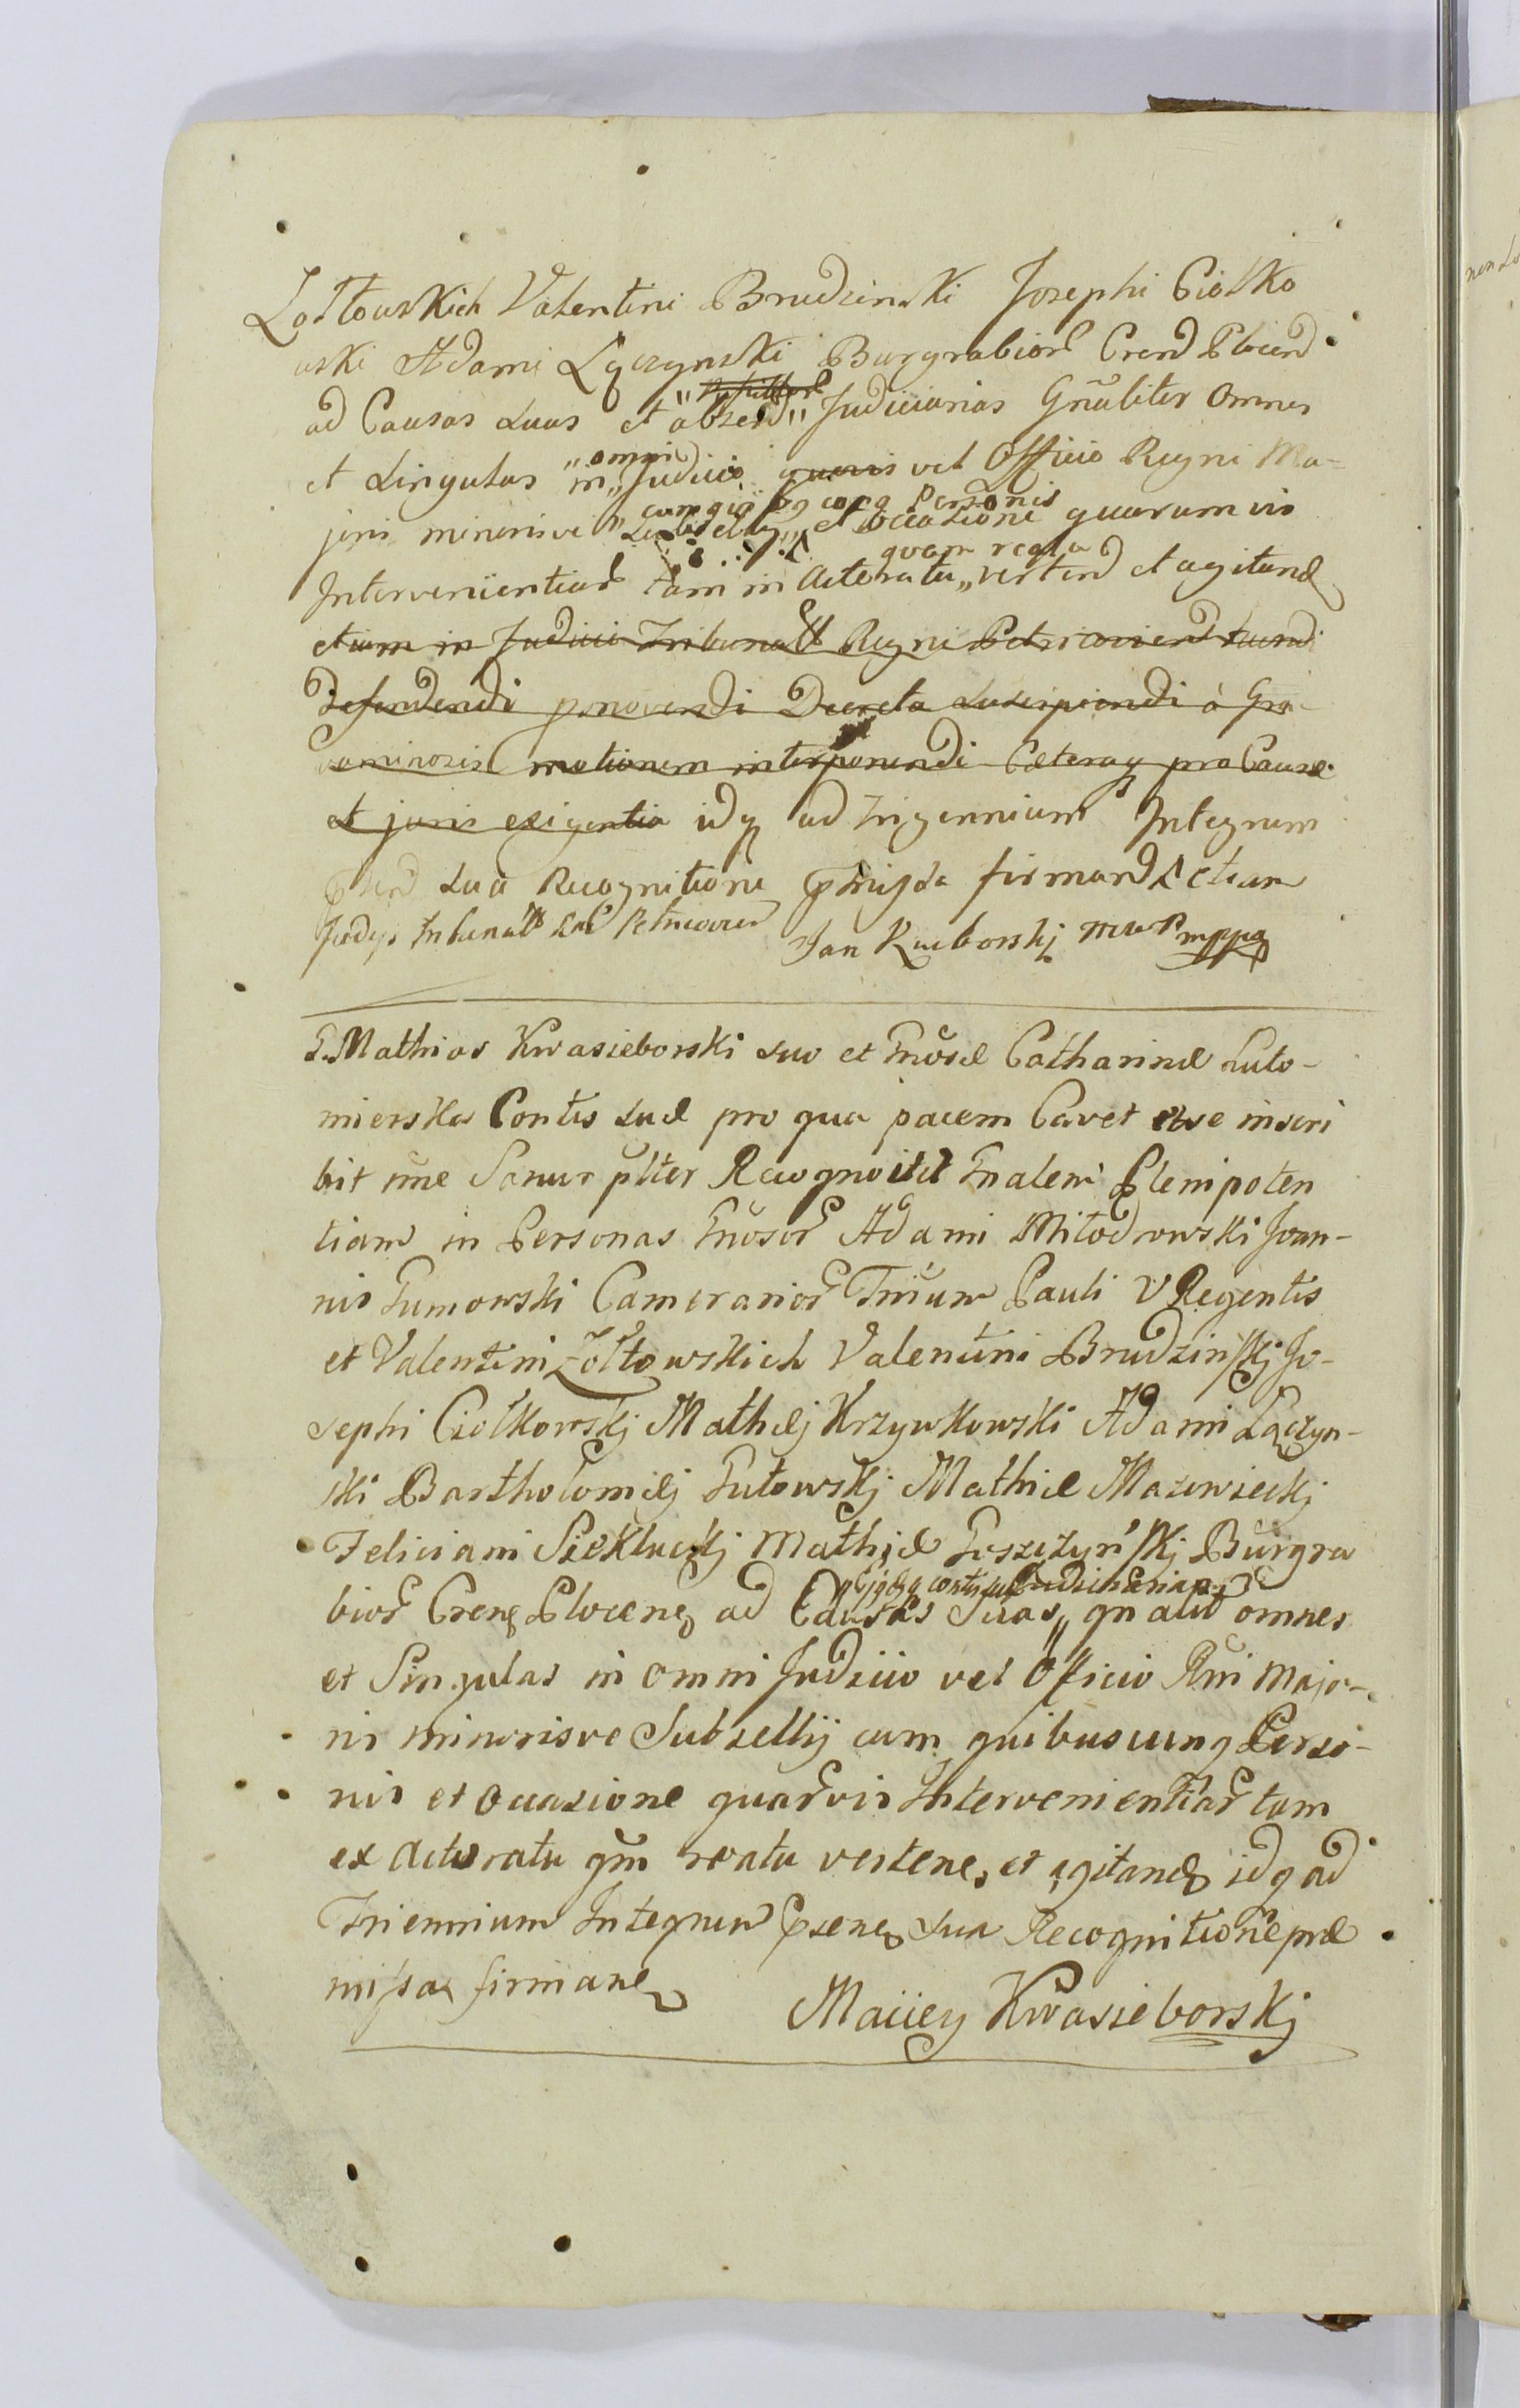 Zołtowskich Valentini Brudzinski Josephi Ciołko
wski Adami Łączynski Burgrabior Crend Plocend
ad Causas suas et absend Judiciarias Gnaliter Omnes
et singulas in „omni Judicio quovis vel Officio Regni Ma=
joris minorisve Subsellij cum quibuscunq Personis et occasione quarumvis
Intervenientiar tam in Actoratu „quam reatu vertend et agitand
etiam in Judicio Tribunali Regni Petricoviend tuendi
Defendendi promovendi Decreta suscipiendi à Gra-
vaminosis motionem interponendi Cæteraq pro Causæ
et juris exigentia idq ad Trigennium Integrum
pnsend sua Recognitione pmissa firmand etiam
Judys Tribunalis Petricovien Jan Kuc­borskj mppa
G. Mathias Kwasieborski suo et Gnosæ Catharinæ Luto-
mierska Contis suæ pro qua pacem Cavet et se inscri
bit nne Sanus plter Recognovit Gnalem Plenipoten
tiam in Personas Gnosor Adami Miłodrowski Joan-
nis Gumowski Camerarior Trium Pauli V Regentis
et Valentini Zołtowskich Valentini Brudzinskj Jo-
sephi Ciołkowskj Mathej Krzywkowski Adami Łączyn-
ski Bartholomej Gutowskj Mathiæ Mazowieckj
Feliciani Siekluckj Mathiæ Goszczyńskj Burgra
bior Crene Plocene ad Causas Suas „ gnalit omnes
et Singulas in omni Judicio vel Officio Rni Majo-
ris minorisve Subsellij cum quibuscunq Perso-
nis et Occasione quarvis Intervenientiar tam
ex Actoratu qm reatu vertene, et agitand idq ad
Triennium Integrum Psene sua Recognitione præ
missa firmane
Maciey Kwasieborskj